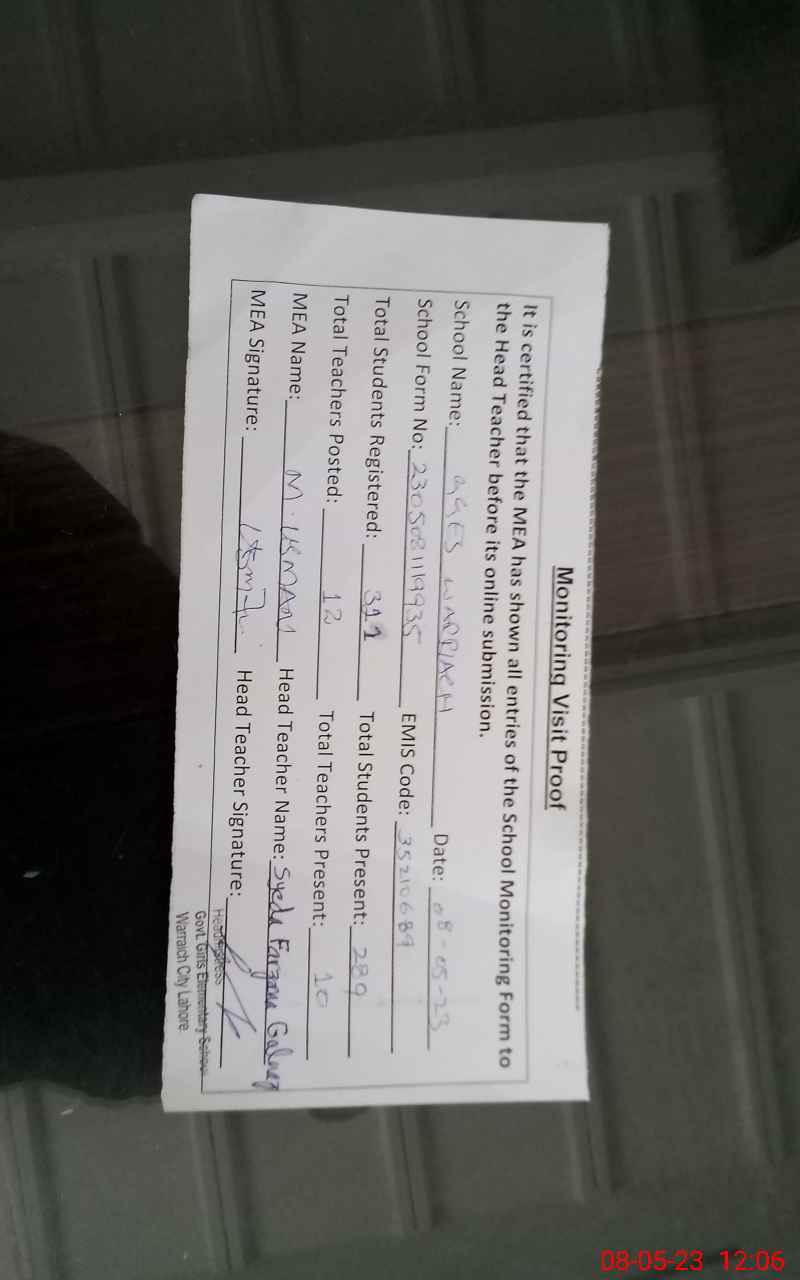 Monitoring Visit Proof
It is certified that the MEA has shown all entries of the School Monitoring Form to
the Head Teacher before its online submission.
School Name: GGES WARRIACH Date: 08-05-23
School Form No: 2305081119935 EMIS Code: 35210689
Total Students Registered: 311 Total Students Present: 289
Total Teachers Posted: 12 Total Teachers Present: 10
MEA Name: M. USMAN Head Teacher Name: Syeda Farzana
MEA Signature: Head Teacher Signature:
Headmistress
Govt. Girls Elementary School
Warraich City Lahore.
08-05-23 12:06